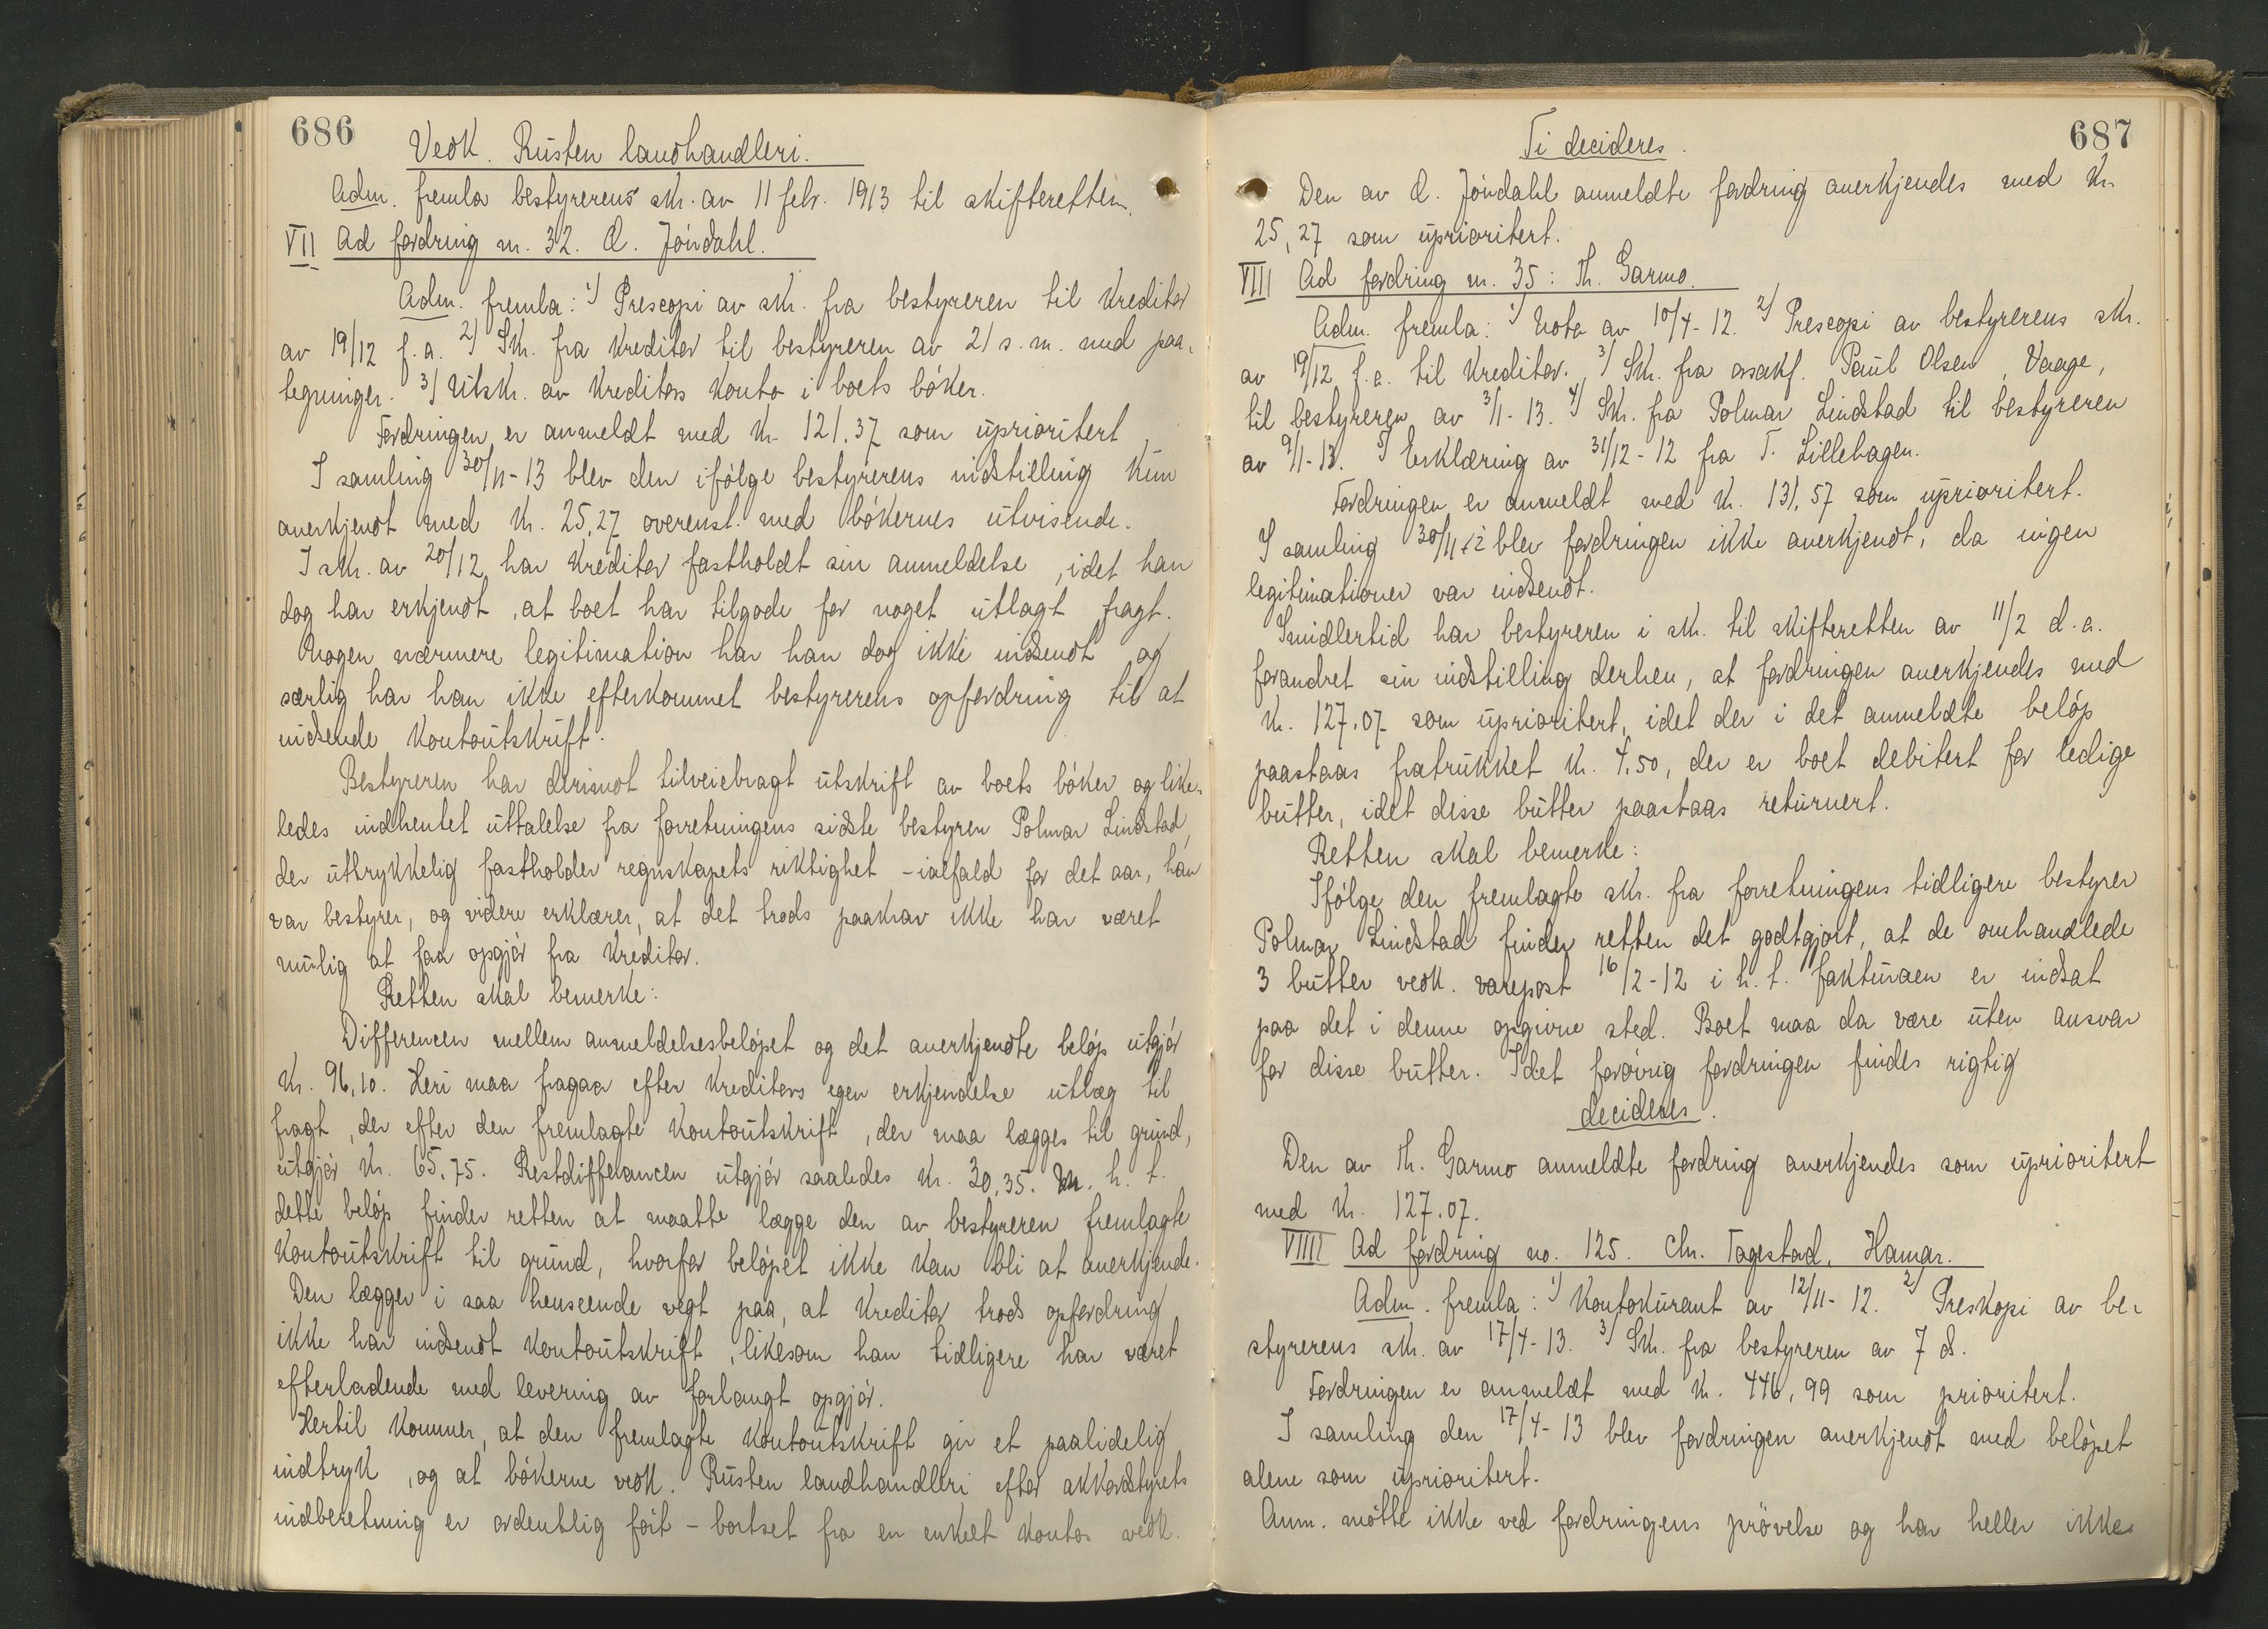 686
Vedk. Rusten landhandleri.
Adm. fremla bestyrerens skr. av 11 febr. 1913 til skifteretten.
VII Ad fordring nr. 32. O. Jöndahl.
Adm. fremla: 1) Prescopi av skr. fra bestyreren til kreditor
av 19/12 f.a. 2) Skr. fra kreditor til bestyreren av 21 s.m. med paa-
tegninger. 3) Utskr. av kreditors konto i boets böker.
Fordringen er anmeldt med kr. 121.37 som uprioritert.
I samling 30/11-13 blev den ifölge bestyrerens indstilling kun
anerkjendt med kr. 25,27 overenst. med bökernes utvisende.
I skr. av 20/12 har kreditor fastholdt sin anmeldelse, idet han
dog har erkjendt, at boet har tilgode for noget utlagt fragt.
Nogen nærmere legitimation har han dog ikke indsendt og
særlig har han ikke efterkommet bestyrerens opfordring til at
indsende kontoutskrift.
Bestyreren har derimot tilveiebragt utskrift av boets böker og like-
ledes indhentet uttalelse fra forretningens sidste bestyrer Polmar Lindstad,
der uttrykkelig fastholder regnskapets riktighet - ialfald for det aar, han
var bestyrer, og videre erklærer, at det trods paakrav ikke har været
mulig at faa opgjör fra kreditor.
Retten skal bemerke:
Differencen mellem anmeldelsesbelöpet og det anerkjendte belöp utgjör
kr. 96,10. Heri maa fragaa efter kreditors egen erkjendelse utlæg til
fragt, der efter den fremlagte kontoutskrift, der maa lægges til grund,
utgjör kr. 65.75. Restdifferancen utgjör saaledes kr. 30,35. M. h. t.
dette belöp finder retten at maatte lægge den av bestyreren fremlagte
kontoutskrift til grund, hvorfor belöpet ikke kan bli at anerkjende.
Den lægger i saa henseende vegt paa, at kreditor trods opfordring
ikke har indsendt kontoutskrift, likesom han tidligere har været
efterladende med levering av forlangt opgjör.
Hertil kommer, at den fremlagte kontoutskrift gir et paalidelig
indtryk, og at bökerne vedk. Rusten landhandleri efter akkordstyrets
indberetning er ordentlig fört - bortset fra en enkelt konto vedk.
687
Ti decideres.
Den av O. Jöndahl anmeldte fordring anerkjendes med kr.
25,27 som uprioritert.
VIII Ad fordring nr. 35: Th. Garmo.
Adm. fremla: 1) Nota av 10/4-12. 2) Prescopi av bestyrerens skr.
av 19/12 f.a. til kreditor. 3) Skr. fra ovsakf. Paul Olsen, Vaage,
til bestyreren av 3/1-13. 4) Skr. fra Polmar Lindstad til bestyreren
av 9/1-13. 5) Erklæring av 31/12-12 fra T. Lillehagen.
Fordringen er anmeldt med kr. 131,57 som uprioritert.
I samling 30/11-12 blev fordringen ikke anerkjendt, da ingen
legitimationer var indsendt.
Imidlertid har bestyreren i skr. til skifteretten av 11/2 d.a.
forandret sin indstilling derhen, at fordringen anerkjendes med
kr. 127.07 som uprioritert, idet der i det anmeldte belöp
paastaas fratrukket kr. 4,50, der er boet debitert for ledige
butter, idet disse butter paastaas returnert.
Retten skal bemerke:
Ifölge den fremlagte skr. fra forretningens tidligere bestyrer
Polmar Lindstad finder retten det godtgjort, at de omhandlede
3 butter vedk. varepost 16/2-12 i h. t. fakturaen er indsat
paa det i denne opgivne sted. Boet maa da være uten ansvar
for disse butter. Idet forövrig fordringen findes rigtig
decideres.
Den av Th. Garmo anmeldte fordring anerkjendes som uprioritert
med kr. 127.07.
VIIII Ad fordring no. 125. Chr. Tagestad, Hamar.
Adm. fremla: 1) Kontokurant av 12/11-12. 2) Preskopi av be-
styrerens skr. av 17/4-13. 3) Skr. fra bestyreren av 7 ds.
Fordringen er anmeldt med kr. 446,99 som prioritert.
I samling den 17/4-13 blev fordringen anerkjendt med belöpet
alene som uprioritert.
Anm. mötte ikke ved fordringens prövelse og har heller ikke